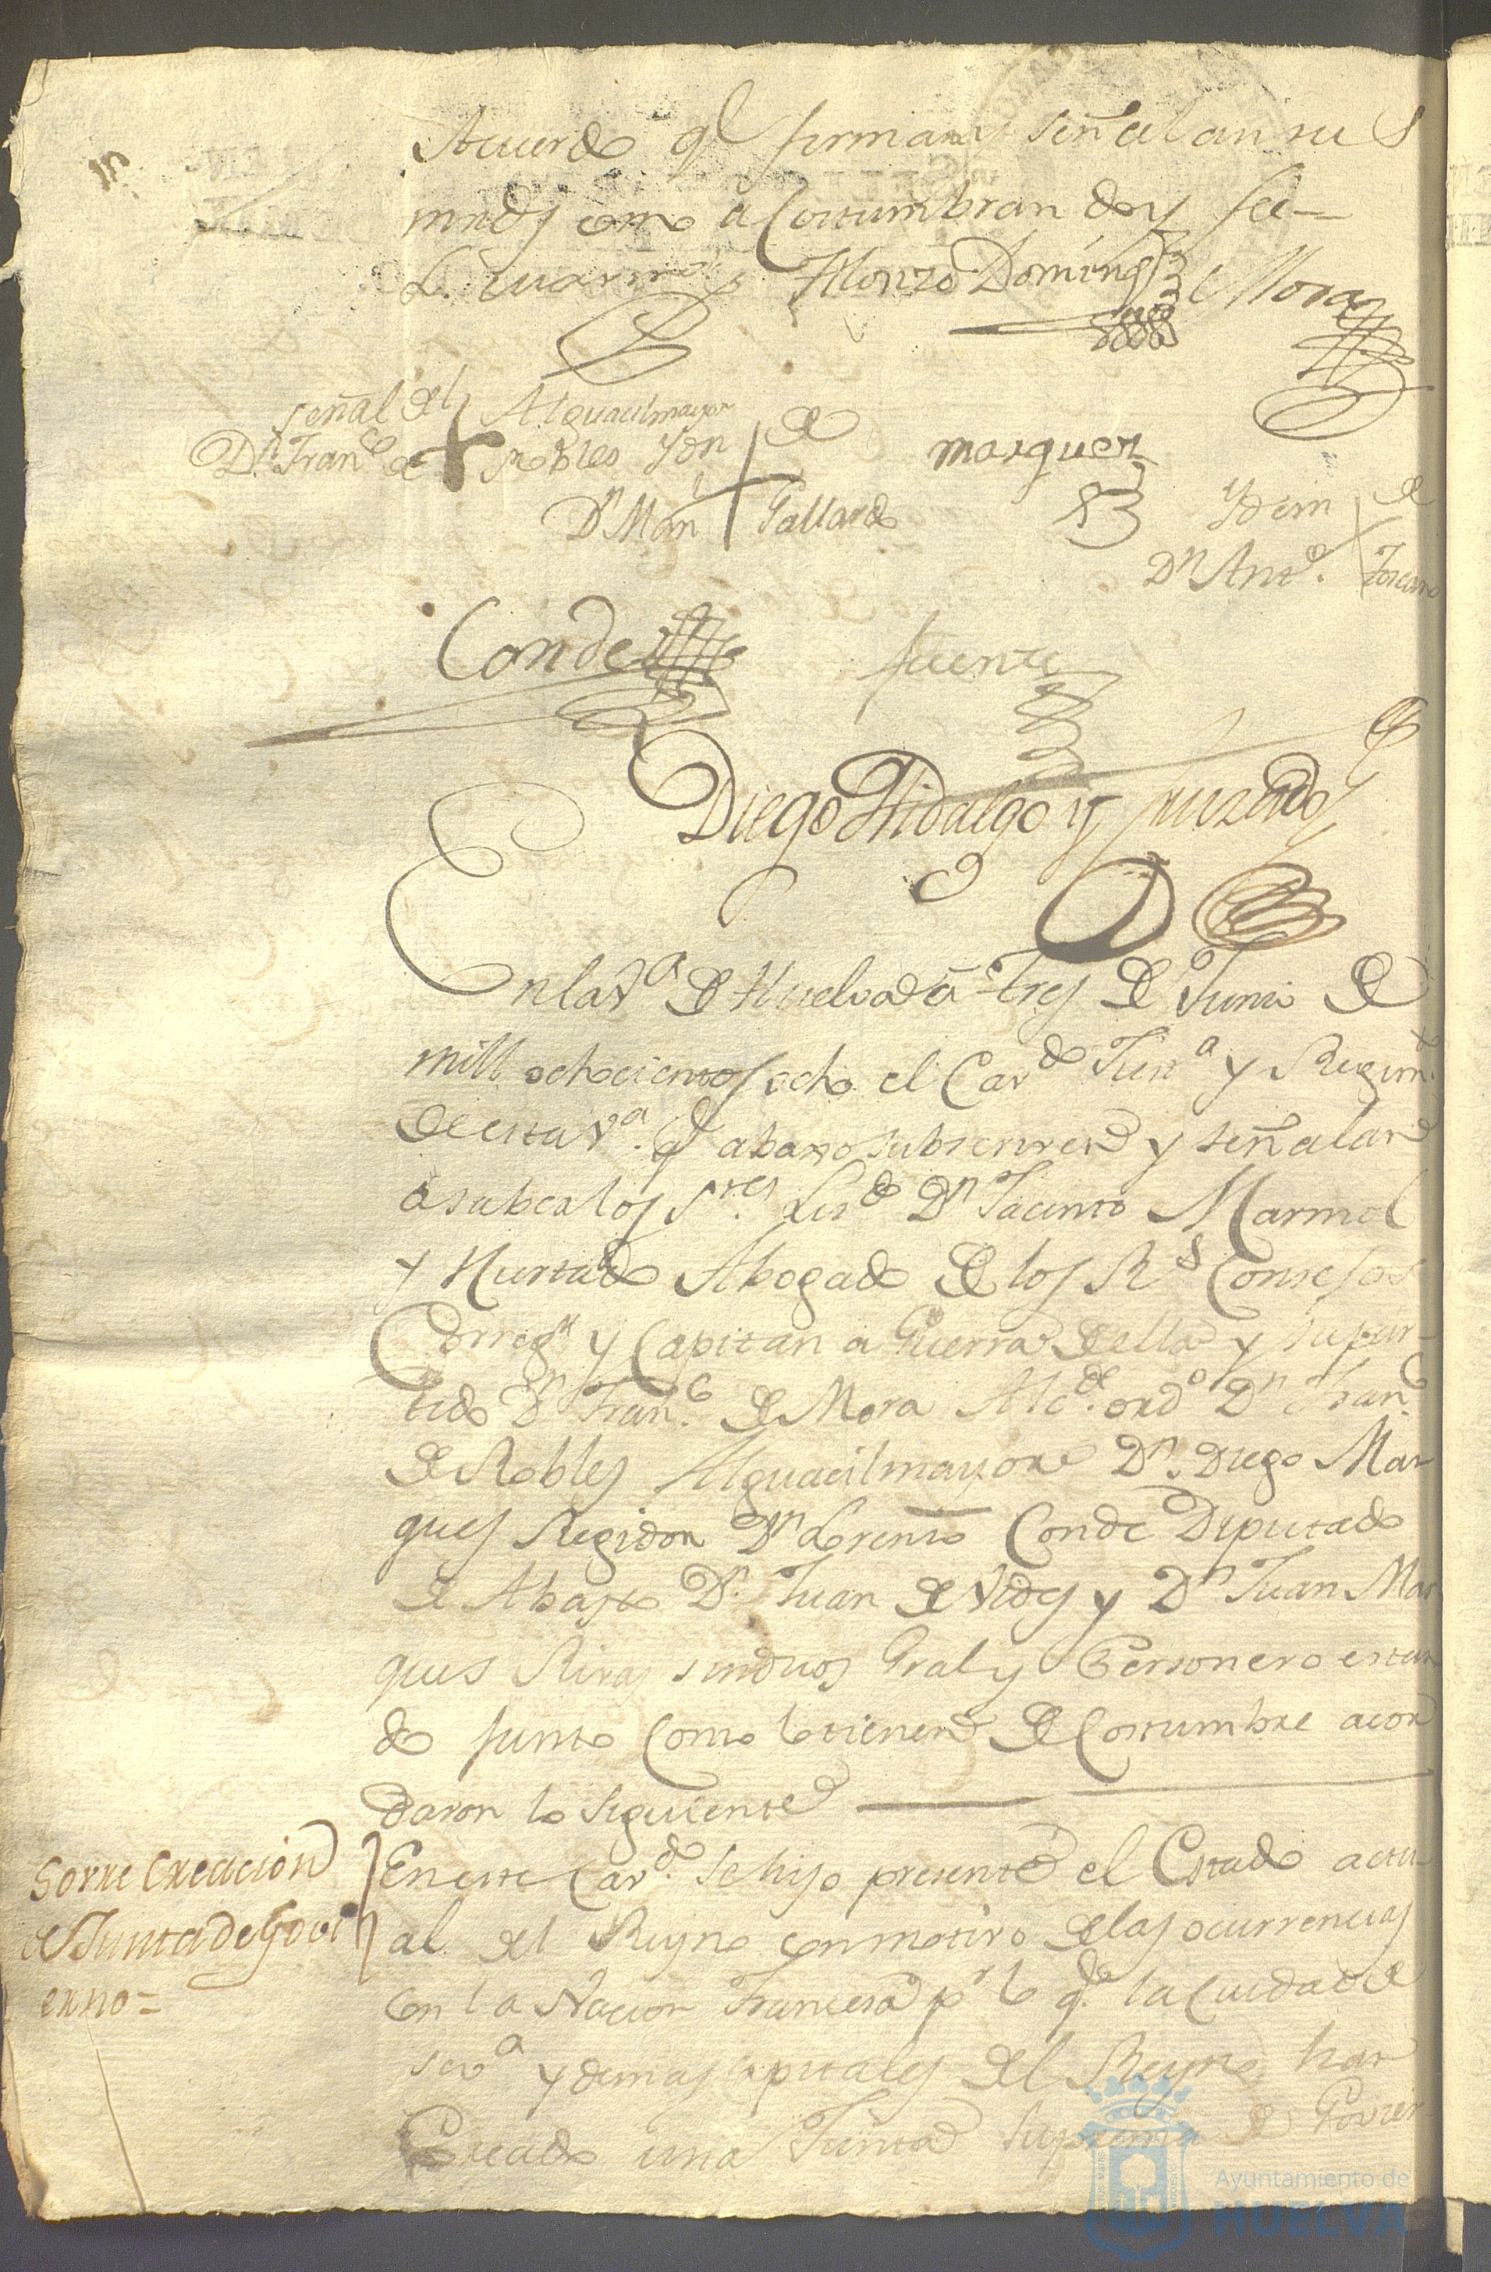 Acuerdo q.e firman y señalan sus
mrds como acostumbran doy fee =
Alonzo Doming.z
Mora
señal del Alguacil mayor
D.n Fran.co de Robles Ydn de
D.n Man.l Gallardo
marquez
Ydem de
D.n Ant.o Toscano
Conde
fuente
Diego Hidalgo y
En la V.a de Huelva en tres de Junio de
mill ochocientos ocho el Cav.do Just.a y Regim.to
de esta V.a q.e abaxo subscriven y señalan
a saber los S.res Lis.do D.n Jacinto Marmol
y Hurtado Abogado de los R.s Consejos
Correg.r y Capitan a Guerra de ella y su par-
tido D.n Fran.co de Mora Alc.de ord.o D.n Fran.co
de Robles Alguacil mayor D.n Diego Mar-
ques Regidor D.n Lorenso Conde Diputado
de Abasto D.n Juan de Vides y D.n Juan Mar
ques Rivas sindicos Gral y Personero estan
do junto como lo tienen de Costumbre acor
daron lo siguiente
Sobre Creacion
de Junta de Govi
erno =
En este Cav.do se hiso presente el Estado actu-
al del Reyno con motivo de las ocurrencias
con la Nacion Francesa p.r lo q.e la Ciudad de
Sev.a y demas capitales del Reyno han
Creado una Junta Suprema de Govier-
Ayuntamiento de
HUELVA